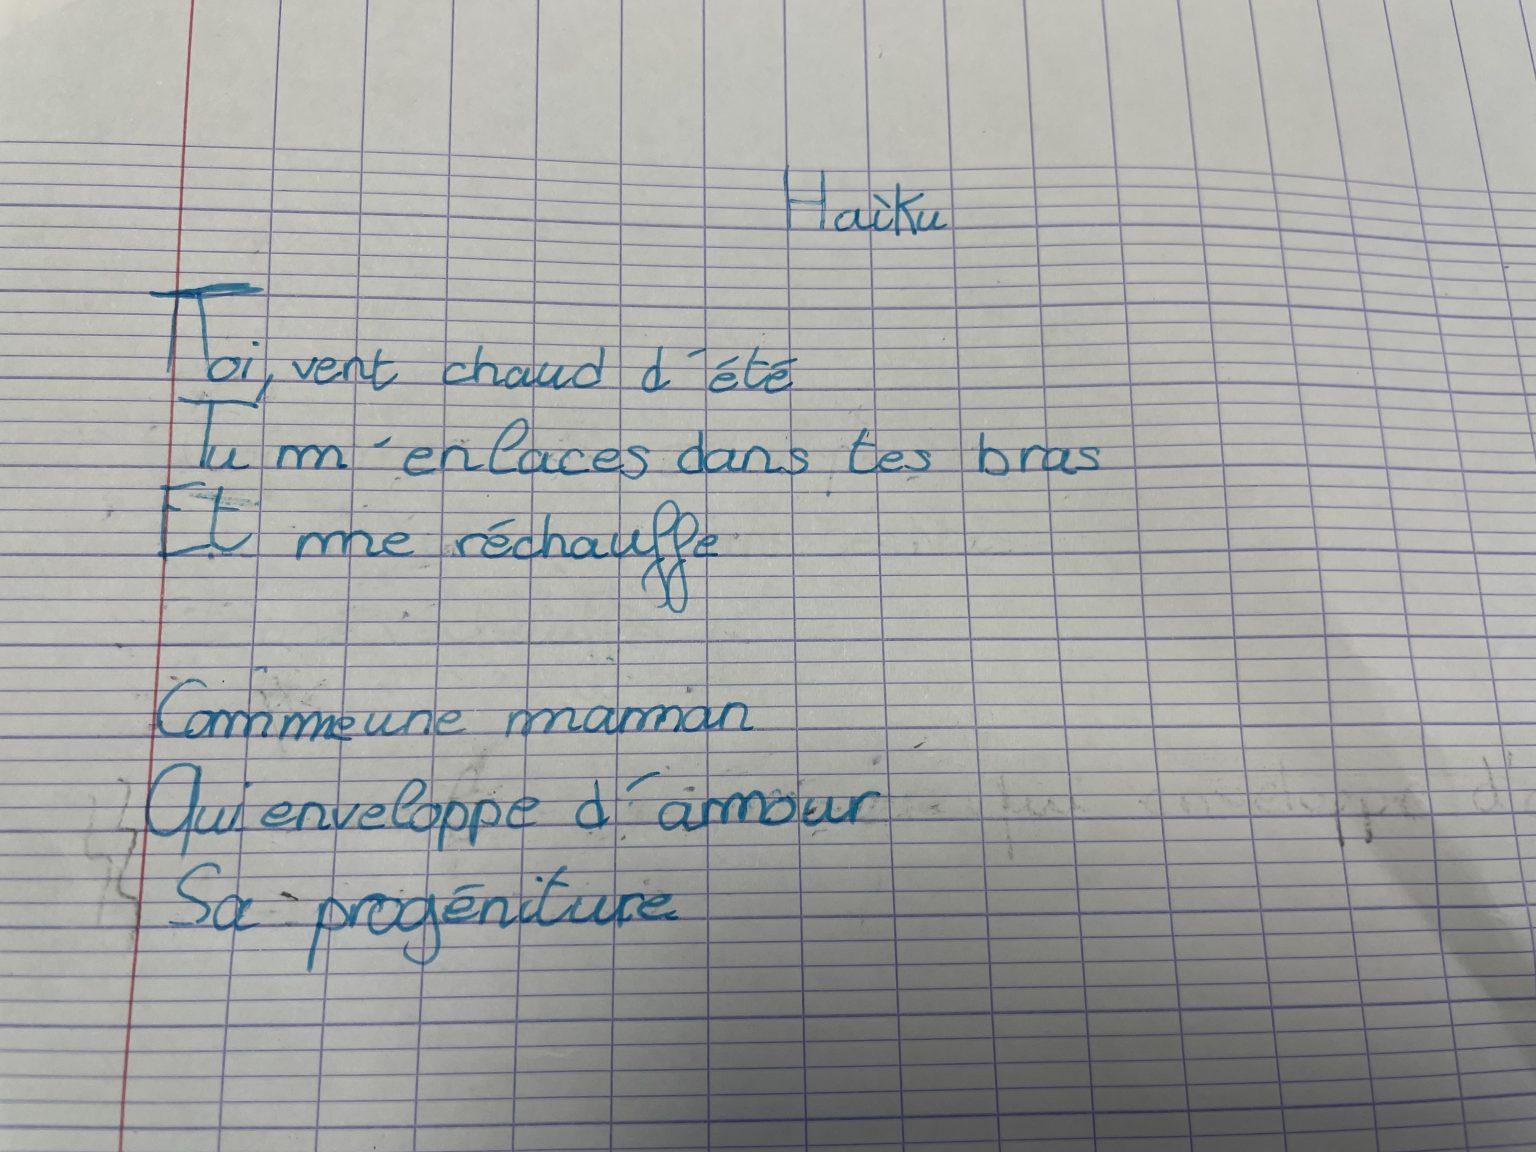 Haïku
Toi, vent chaud d'été
Tu m'enlaces dans tes bras
Et me réchauffe
Comme une maman
Qui enveloppe d'amour
Sa progéniture